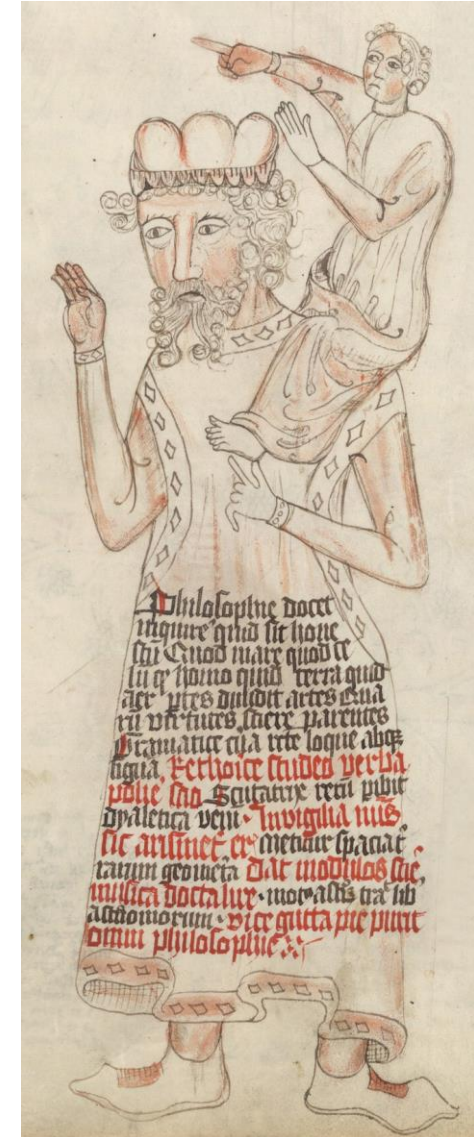 Philosophie docet
inquire quid sit hone
stū Quod mare quod ce
lū qꝫ homo quid terra quid
aer ptes diuidit artes Qua
rū virtutes scire parentes
Gramatice cīa rete loque absqꝫ
ligua Rethoice studeo verba
polie scō Scutatrix recti pibit
dyaletica veni Inuigilia niīs
sic arismet er metitur spaciāt
rarum geometa Dat modulos scīe
musica docta lire mot astris tra lib
astiomorum vice gutta pie pinxit
omni philosophie